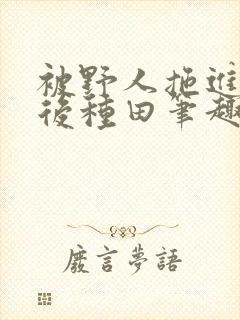 被野人拖進
後種田筆趣
廢言夢語